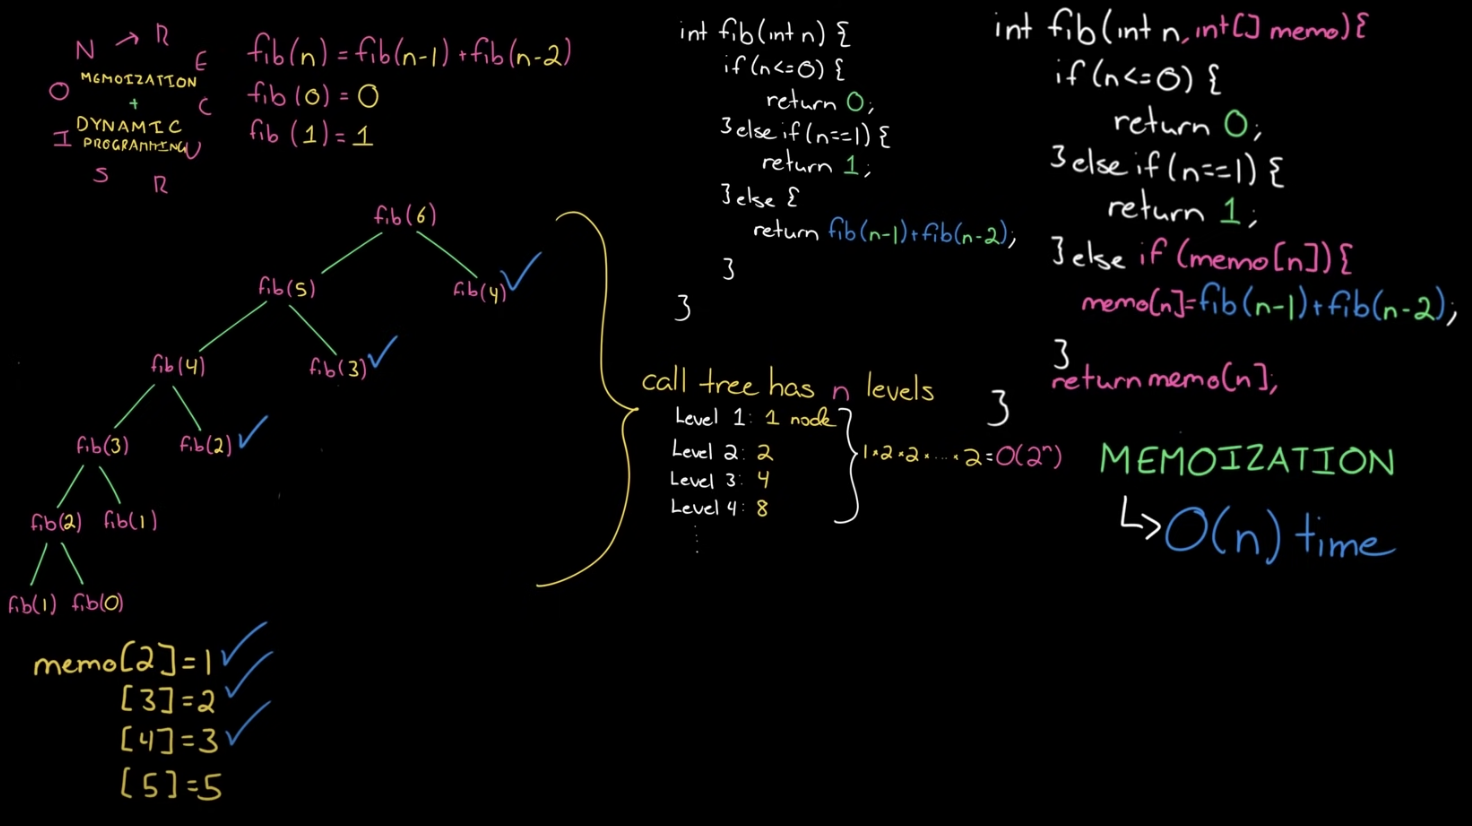 RECURSION
MEMOIZATION
+
DYNAMIC
PROGRAMMING
fib(n) = fib(n-1) + fib(n-2)
fib (0) = 0
fib (1) = 1
fib(6)
fib(5)
fib(4)
fib(4)
fib(3)
fib(3)
fib(2)
fib(2)
fib(1)
fib(1)
fib(0)
memo[2]=1
[3]=2
[4]=3
[5]=5
int fib(int n) {
if(n<=0) {
return 0;
}else if(n==1) {
return 1;
}else {
return fib(n-1)+fib(n-2);
}
}
call tree has n levels
Level 1: 1 node
Level 2: 2
Level 3: 4
Level 4: 8
1*2*2*....*2=O(2ⁿ)
int fib(int n, int[] memo){
if(n<=0) {
return 0;
}else if(n==1) {
return 1;
}else if (memo[n]){
memo[n]=fib(n-1)+fib(n-2);
}
return memo[n];
}
MEMOIZATION
↳O(n) time